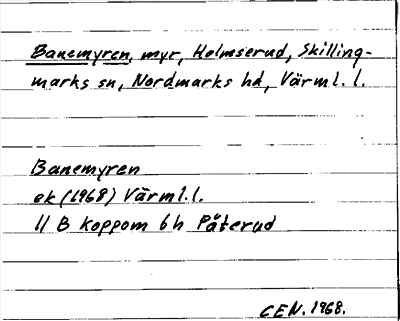 Banemyren, myr, Holmserud, Skilling-
marks sn, Nordmarks hd, Värml. l.
Banemyren
ek (1968) Värml. l.
11 B Koppom 6 h Påterud
CEN. 1968.